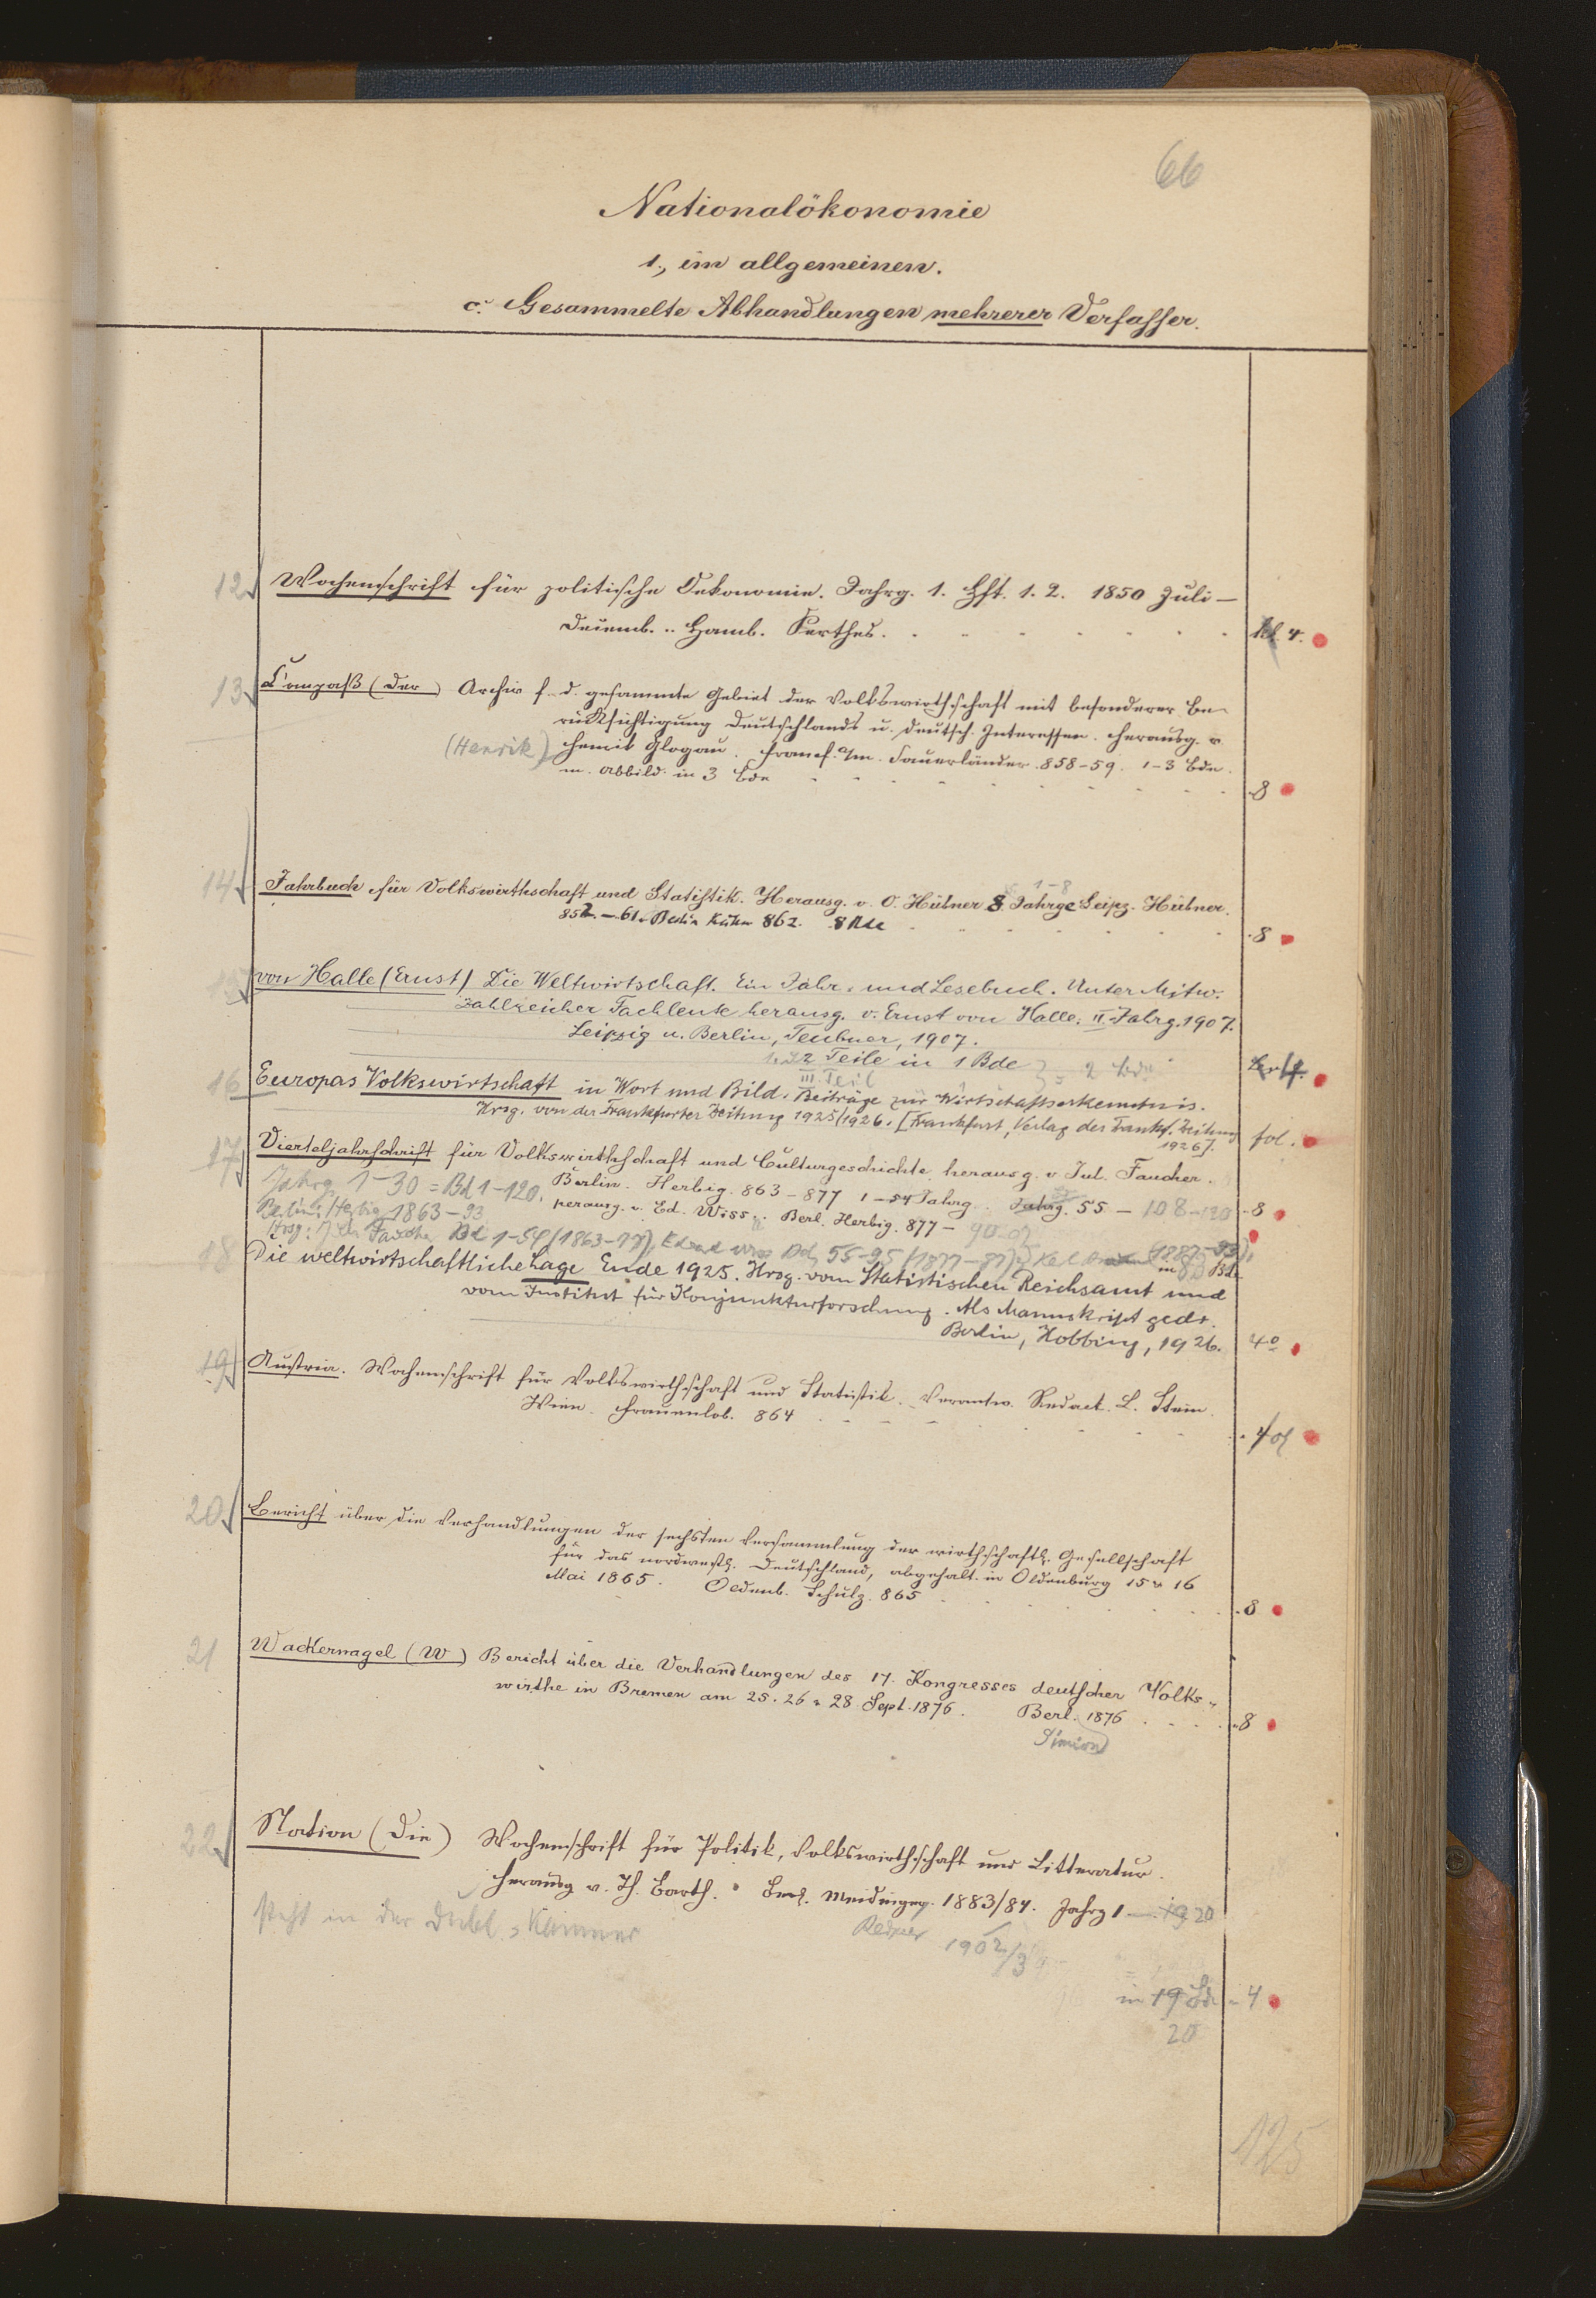 66
Nationalökonomie
1., im allgemeinen.
c. Gesammelte Abhandlungen mehrerer Verfasser.
12 Wochenschrift für politische Oekonomie. Jahrg. 1. Hft. 1. 2. 1850 Juli –
Decemb. Hamb. Perthes. kl. 4.
13 Compaß (der) Archiv f. d. gesammte Gebiet der Volkswirthschaft mit besonderer Be-
rücksichtigung Deutschlands u. deutsch. Interessen. Herausg. v.
(Henrik) Glogau. Francf. a/m. Sauerländer 858–59. 1–3 Bde.
m. Abbild. in 3 Bde 8
14 Jahrbuch für Volkswirthschaft und Statistik. Herausg. v. O. Hübner 8 Jahrge 1–8 Leipz. Hübner.
852. – 61. Berlin Kühn 862. 8 Bde 8
15 von Halle (Ernst) Die Weltwirtschaft. Ein Jahr- und Lesebuch. Unter Mitw.
zahlreicher Fachleute herausg. v. Ernst von Halle. II. Jahrg. 1907.
Leipzig u. Berlin, Teubner, 1907.
1. 2 Teile in 1 Bde
III. Teil = 2 Bde 4.
16 Europas Volkswirtschaft in Wort und Bild. Beiträge zur Wirtschaftserkenntnis.
Hrsg. von der Frankfurter Zeitung 1925/1926. [Frankfurt, Verlag der Frankf. Zeitung
1926]. fol.
17 Vierteljahrschrift für Volkswirthschaft und Culturgeschichte herausg. v Jul. Faucher.
Berlin. Herbig. 863–877 1–54 Jahrg. Jahrg. 55 – 108–120 8
Jahrg. 1–30 = Bd 1–120. herausg. v. Ed. Wiss. Berl. Herbig. 877 –
Berlin: Herbig 1863–93
Hrsg: Faucher Bd 1–54 (1863–77), Eduard Wiss Bd 55–95 (1877–87)
18 Die weltwirtschaftliche Lage Ende 1925. Hrsg. vom Statistischen Reichsamt und
vom Institut für Konjunkturforschung. Als Manuskript gedr.
Berlin, Hobbing, 1926. 4°
19 Austria. Wochenschrift für Volkswirthschaft und Statistik. Verantw. Redact. L. Stein.
Wien. Frauenlob. 864
20 Bericht über die Verhandlungen der sechsten Versammlung der wirthschaftl. Gesellschaft
für das nordwestl. Deutschland, abgehalt. in Oldenburg 15 u 16
Mai 1865. Oldenb. Schulz. 865 8
21 Wackernagel (W) Bericht über die Verhandlungen des 17. Kongresses deutscher Volks-
wirthe in Bremen am 25. 26 u 28 Sept. 1876. Berl. 1876 8
Simion
22 Nation (Die) Wochenschrift für Politik, Volkswirthschaft und Litteratur.
Herausg v. Th. Barth. Berl. 1883/84. Jahrg 1 – 19 20
steht in der Kammer
1902/3
in 19 Bde 4
20
125